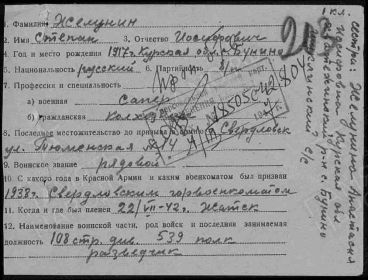 1. Фамилия Жемунин
2. Имя Степан 3. Отчество Иосифович
4. Год и место рождения 1917 г. Курская обл. с. Бунино
5. Национальность русский 6. Партийность б/п
7. Профессия и специальность
а) военная сапер
б) гражданская Колхоз
8. Последнее местожительство до призыва в армию г. Свердловск
ул. Тюменская
9. Воинское звание рядовой
10. С какого года в Красной Армии и каким военкоматом был призван
1938 г. Свердловским горвоенкоматом
11. Когда и где был пленен 22/VII-42 г. Жатск
12. Наименование воинской части, род войск и последняя занимаемая
должность 108 стр. див. 539 полк
разведчик
18505042804
сестра: Жемунина Анастасия
Иосифовна Курская обл.
с. Бунино
с/с